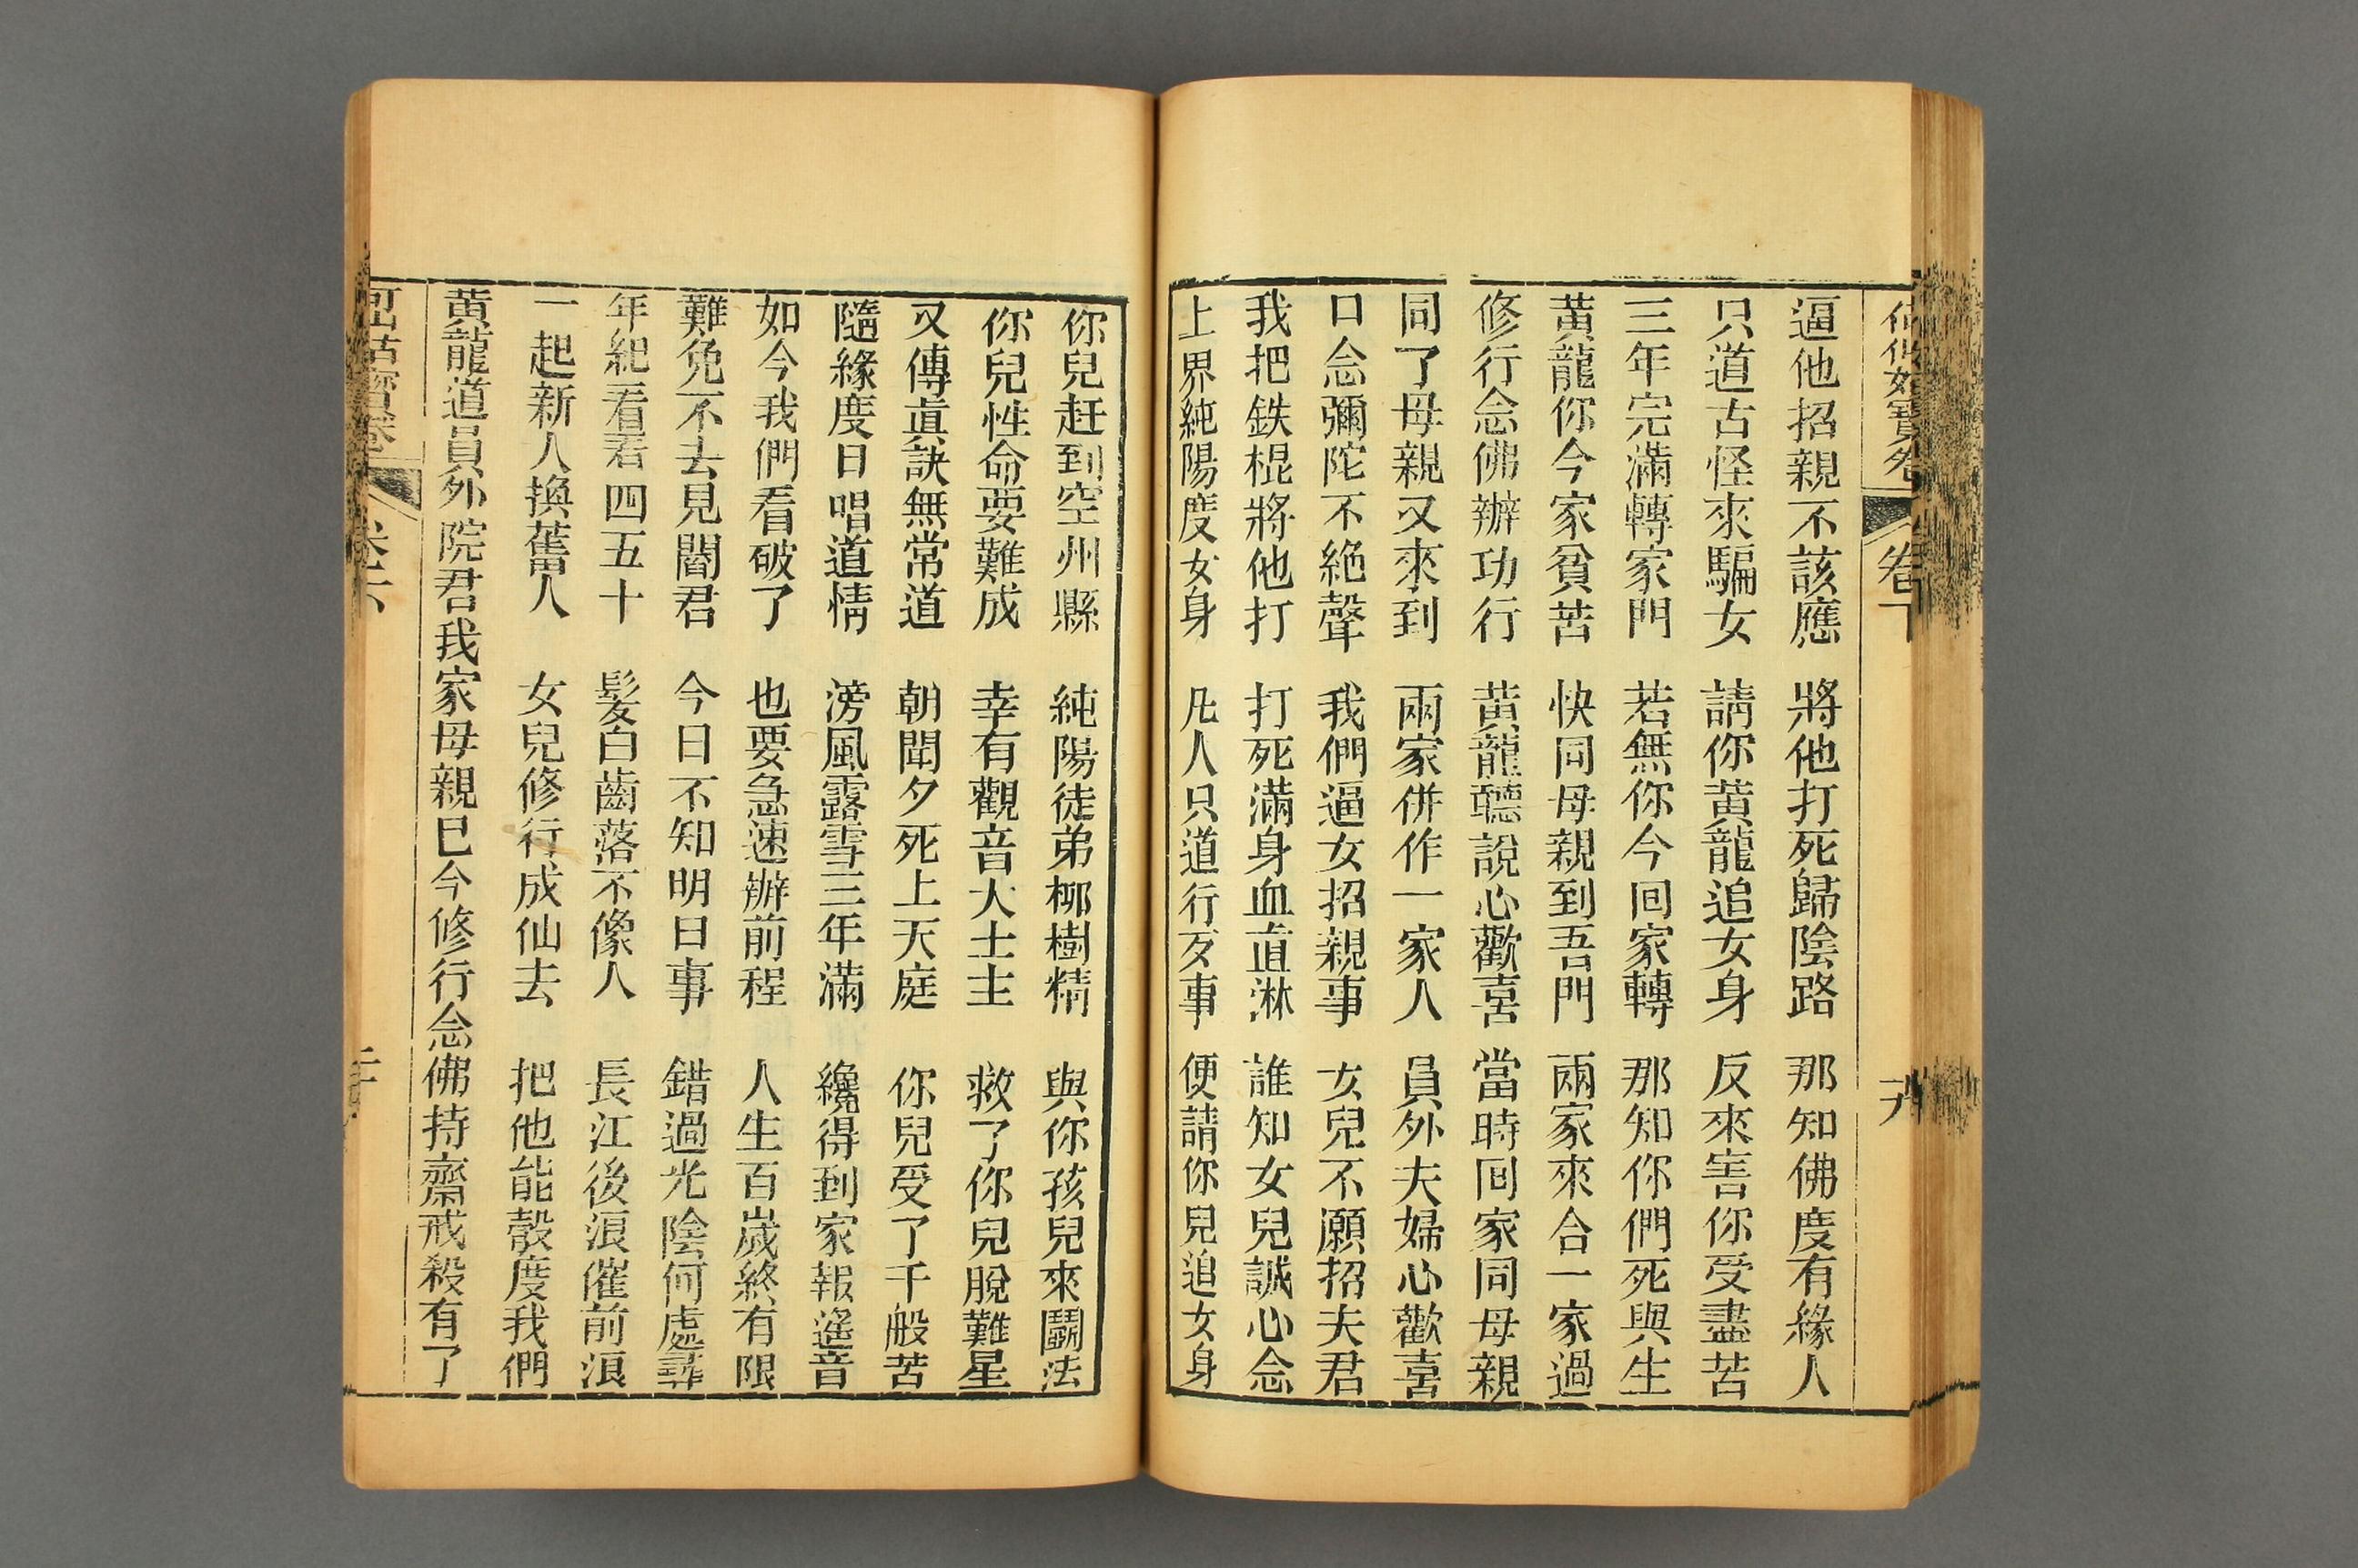 何仙姑寶卷 卷下
逼他招親不該應 將他打死歸陰路 那知佛度有緣人
只道古怪來騙女 請你黃龍追女身 反來害你受盡苦
三年完滿轉家門 若無你今回家轉 那知你們死與生
黃龍你今家貧苦 快同母親到吾門 兩家來合一家過
修行念佛辦功行 黃龍聽說心歡喜 當時回家同母親
同了母親又來到 兩家併作一家人 員外夫婦心歡喜
口念彌陀不絕聲 我們逼女招親事 女兒不願招夫君
我把鉄棍將他打 打死滿身血直淋 誰知女兒誠心念
上界純陽度女身 凡人只道行歹事 便請你兒追女身
你兒赶到空州縣 純陽徒弟柳樹精 與你孩兒來鬪法
你兒性命要難成 幸有觀音大士主 救了你兒脫難星
又傳眞訣無常道 朝聞夕死上天庭 你兒受了千般苦
隨緣度日唱道情 滂風露雪三年滿 纔得到家報遙音
如今我們看破了 也要急速辦前程 人生百歲終有限
難免不去見閻君 今日不知明日事 錯過光陰何處尋
年紀看看四五十 髮白齒落不像人 長江後浪催前浪
一起新人換舊人 女兒修行成仙去 把他能彀度我們
黃龍道員外院君我家母親已今修行念佛持齋戒殺有了